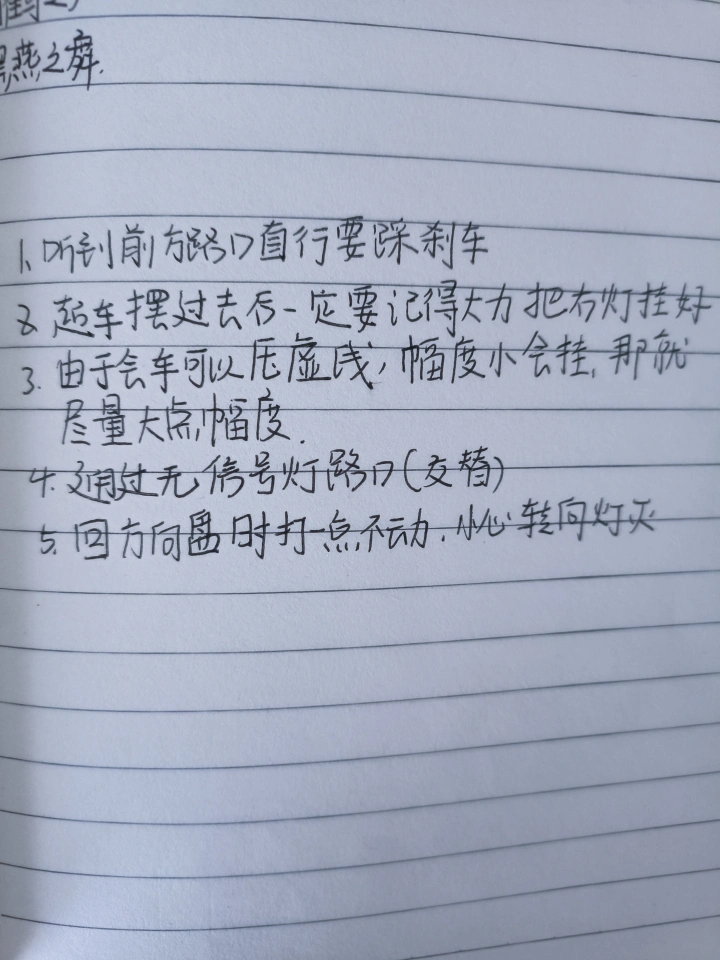 燕之舞.
1、听到前方路口直行要踩刹车
2. 起车摆过去后一定要记得大力把右灯挂好
3. 由于会车可以压虚线，幅度小会挂，那就
尽量大点幅度.
4. 通过无信号灯路口(交替)
5. 回方向盘时打一点不动.小心转向灯灭